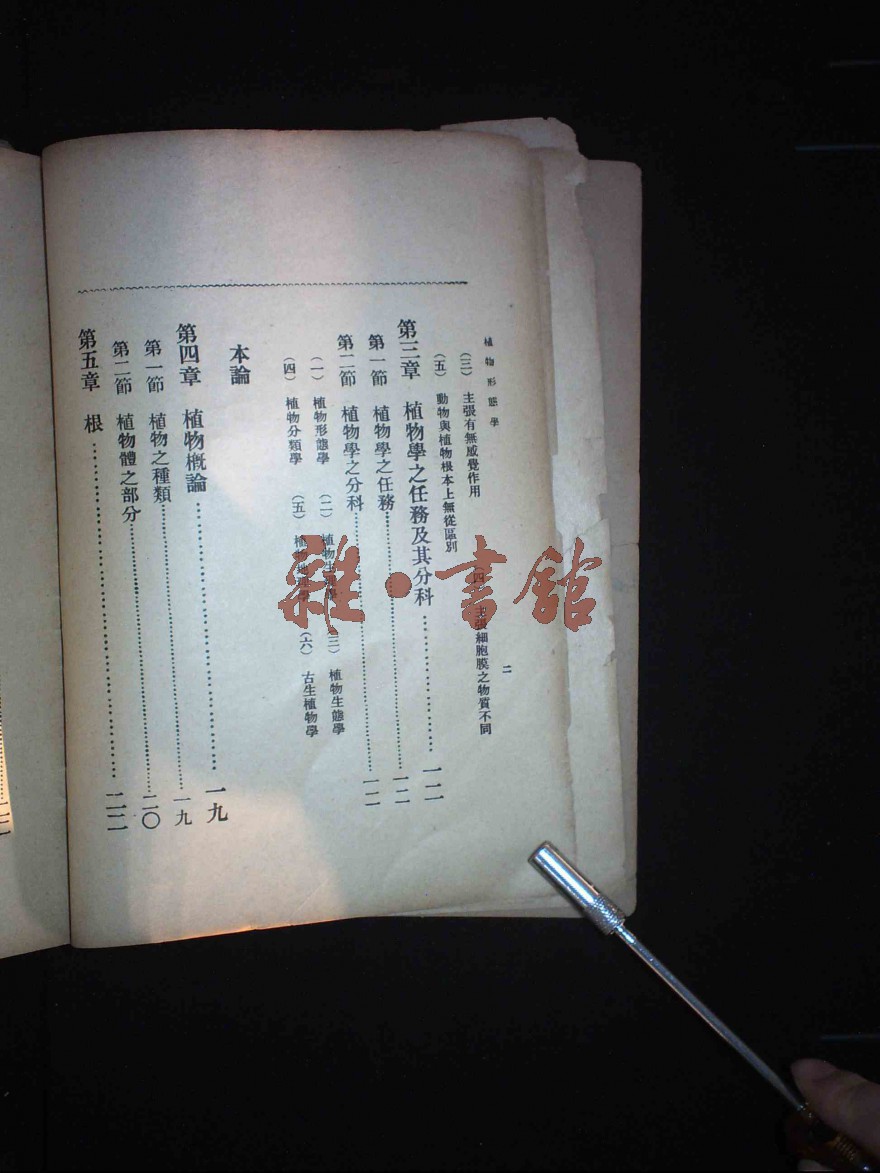 植物形態學
二
(三) 主張有無感覺作用 (四) 主張細胞膜之物質不同
(五) 動物與植物根本上無從區別
第三章 植物學之任務及其分科……一二
第一節 植物學之任務……一二
第二節 植物學之分科……一二
(一) 植物形態學 (二) 植物生理學 (三) 植物生態學
(四) 植物分類學 (五) 植物地理學 (六) 古生植物學
本論
第四章 植物概論……一九
第一節 植物之種類……一九
第二節 植物體之部分……二〇
第五章 根……二二
雜·書館